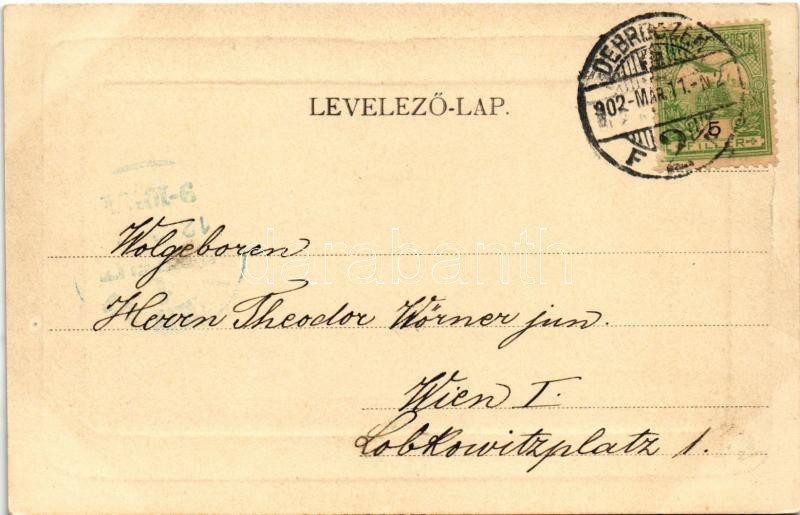 LEVELEZŐ-LAP.
DEBRECZEN
902-MAR.11.-N2
F
5
FILLÉR
9-10
12
darabanth
Wolgeboren
Herrn Theodor Wörner jun.
Wien I.
Lobkowitzplatz 1.